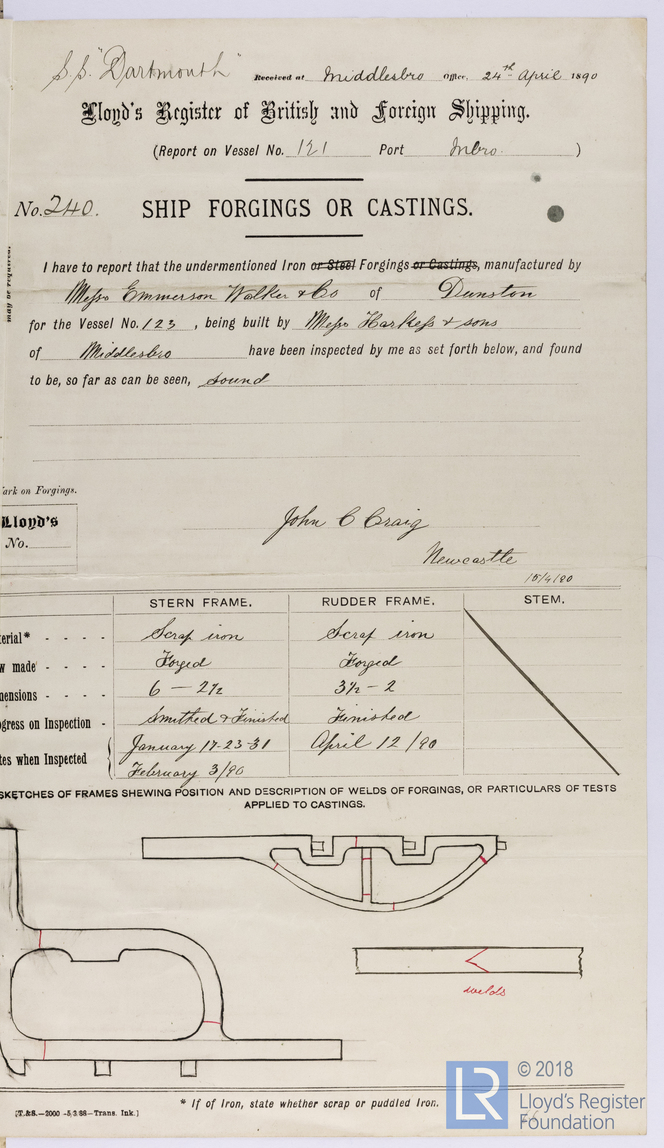 S.S. "Dartmouth" Received at Middlesbro Office, 24th April 1890
Lloyd's Register of British and Foreign Shipping.
(Report on Vessel No. 121 Port Mbro. )
No. 240. SHIP FORGINGS OR CASTINGS.
may be required.
I have to report that the undermentioned Iron or Steel Forgings or Castings, manufactured by
Messrs Emmerson Walker & Co of Dunston
for the Vessel No. 123, being built by Messrs Harkess & sons
of Middlesbro have been inspected by me as set forth below, and found
to be, so far as can be seen, sound
ark on Forgings.
Lloyd's
No.
John C Craig
Newcastle
15/4/90
STERN FRAME. RUDDER FRAME. STEM.
terial* - - - - Scrap iron Scrap iron
w made - - - - Forged Forged
mensions - - - - 6 — 2½ 3½ — 2
ogress on Inspection - Smithed & Finished Finished
tes when Inspected { January 17-23-31 April 12/90
February 3/90
SKETCHES OF FRAMES SHEWING POSITION AND DESCRIPTION OF WELDS OF FORGINGS, OR PARTICULARS OF TESTS
APPLIED TO CASTINGS.
welds
* If of Iron, state whether scrap or puddled Iron.
[T.&S.—2000 -5/3/88—Trans. Ink.]
LR
© 2018
Lloyd's Register
Foundation